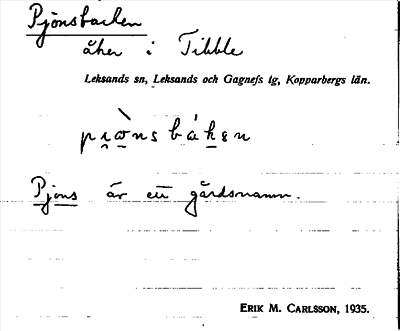 Pjönsbacken
åker i Tibble
Leksands sn, Leksands och Gagnefs tg, Kopparbergs län.
Pjöns är ett gårdsnamn.
ERIK M. CARLSSON, 1935.